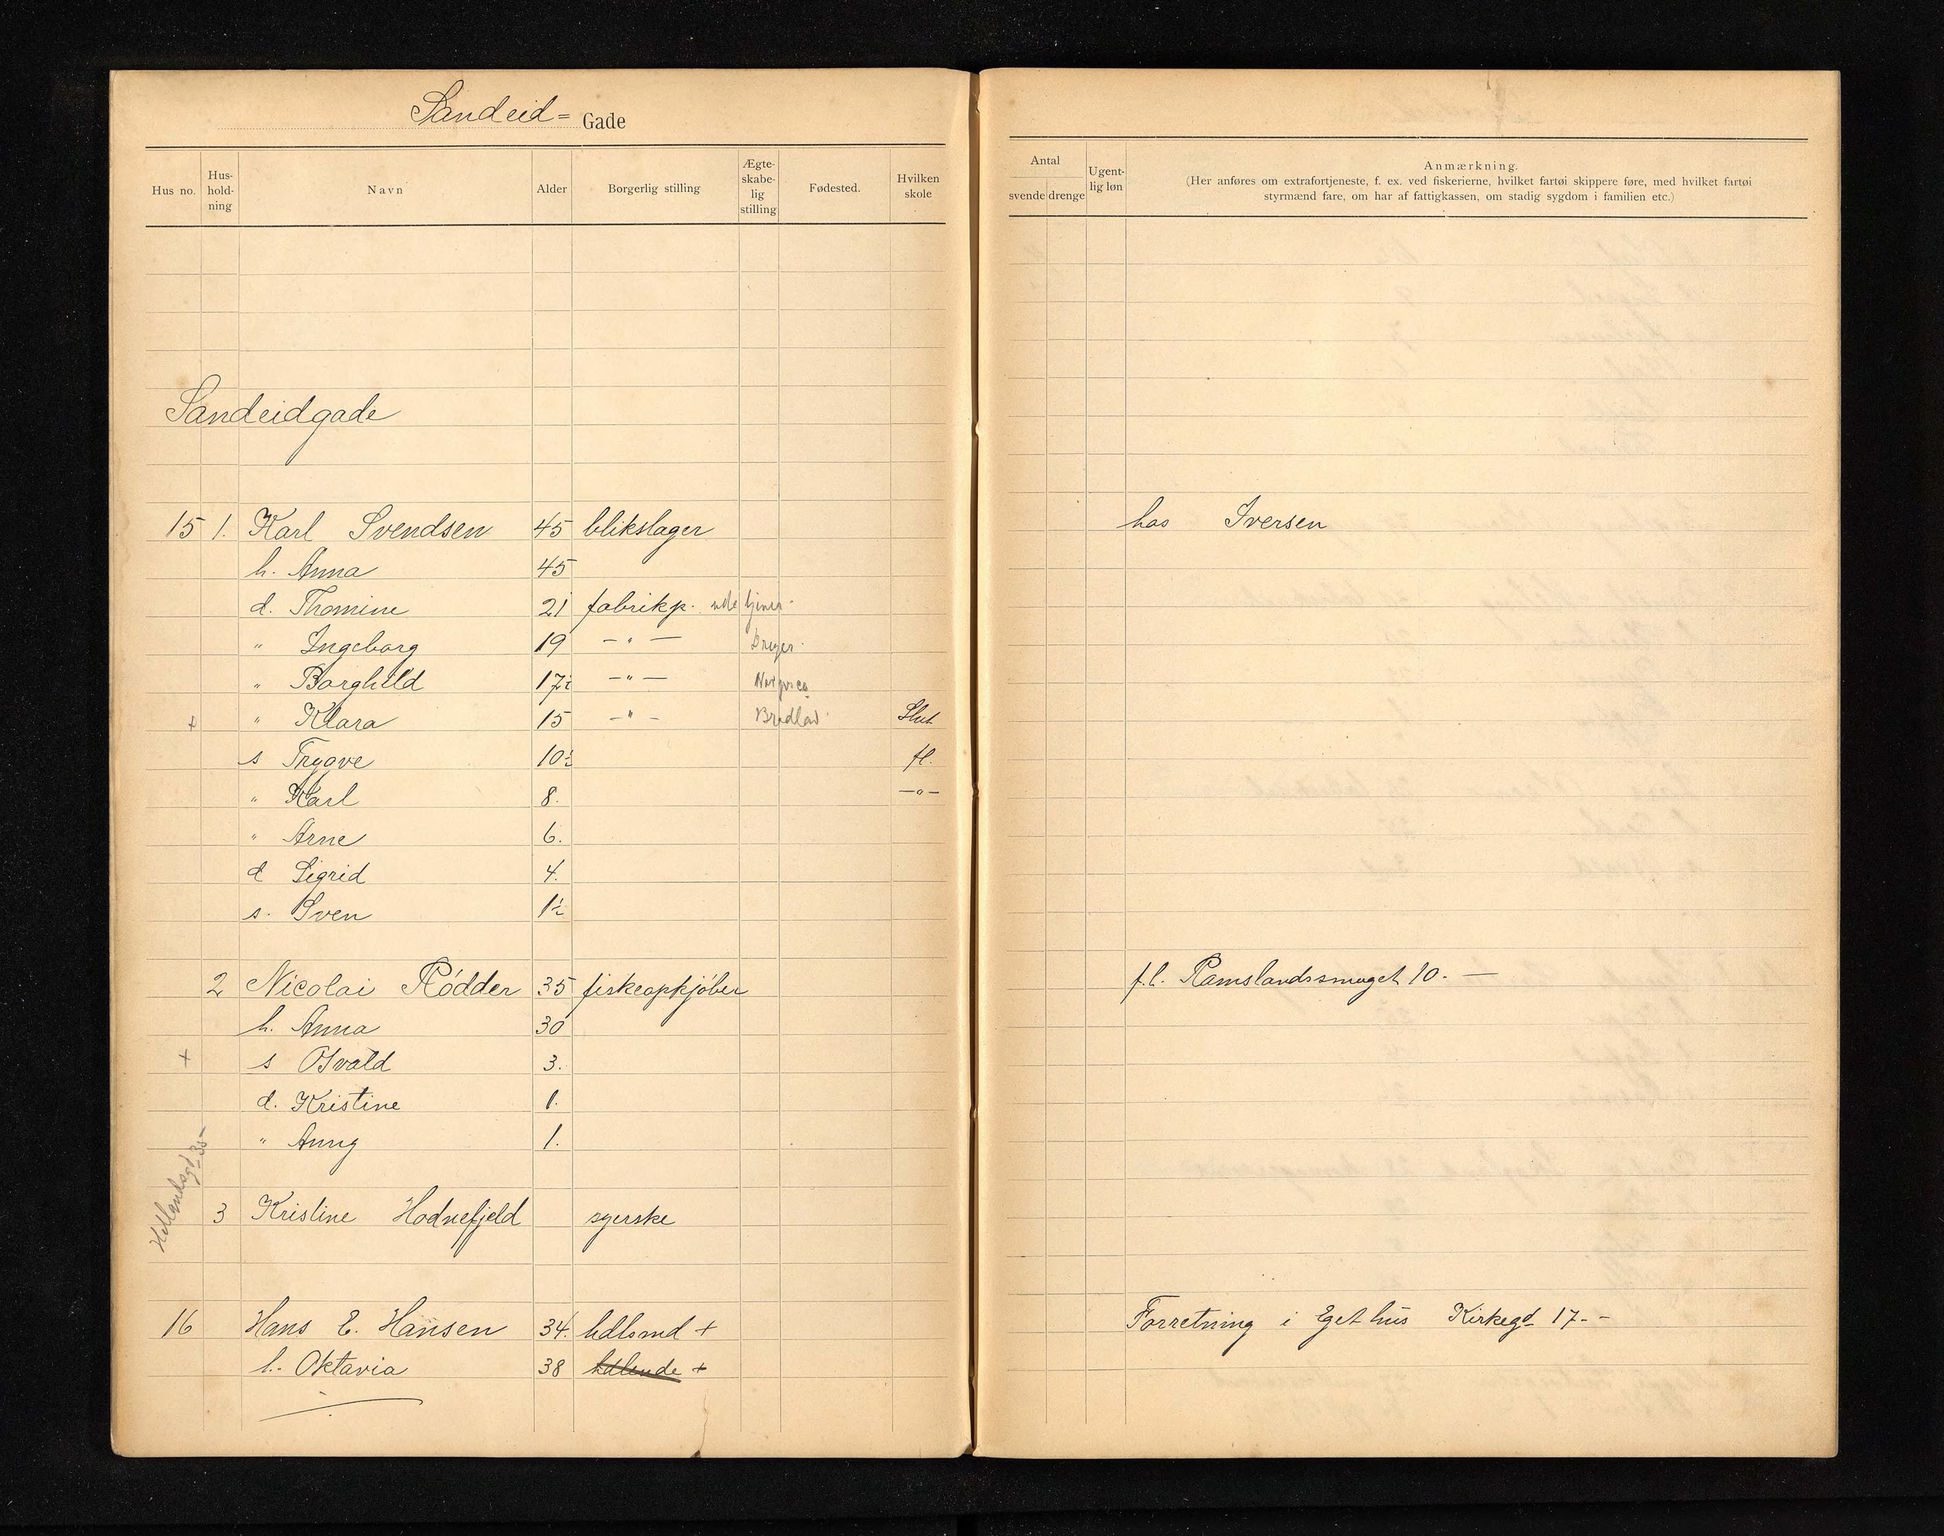 Sandeid= Gade
Hus no. Hus-hold-ning Navn Alder Borgerlig stilling Ægte-skabe-lig stilling Fødested. Hvilken skole
Antal svende drenge Ugent-lig løn Anmærkning.
(Her anføres om extrafortjeneste, f. ex. ved fiskerierne, hvilket fartøi skippere føre, med hvilket fartøi
styrmænd fare, om har af fattigkassen, om stadig sygdom i familien etc.)
Sandeidgade
15 1. Karl Svendsen 45 blikslager hos Iversen
h. Anna 45
d. Thomine 21 fabrikp. ude tjener.
" Ingeborg 19 —"— Dreyer.
" Borghild 17½ —"—
+ " Klara 15 —"— Slut
s Trygve 10½ fl.
" Karl 8. —"—
" Arne 6.
d Sigrid 4.
s. Sven 1½
2 Nicolai Rödder 35 fiskeopkjøber f.l. Ramslandssmuget 10. —
h. Anna 30
+ s Osvald 3.
d. Kristine 1.
" Anny 1.
Hellandsgd 35—
3 Kristine Hodnefjeld syerske
16 Hans E. Hansen 34. hdlsmd + Forretning i Eget hus Kirkegd 17.-
h. Oktavia 38 hdlende +